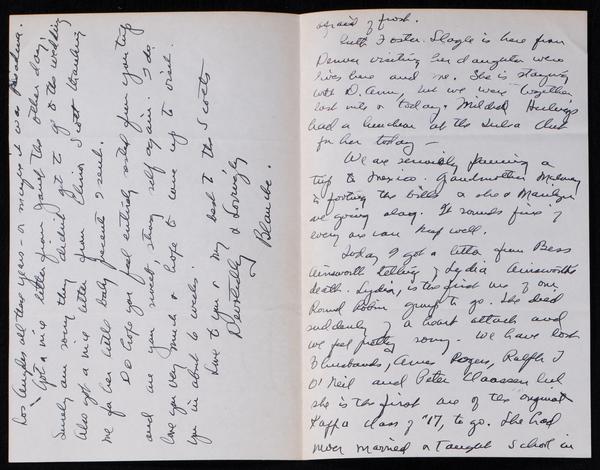 afraid of frost.
Ruth Foster Slagle is here from
Denver visiting her daughter who
lives here and me. She is staying
with D. Ann, but we were together
last nite & today. Mildred
had a luncheon at the Tulsa Club
for her today —
We are seriously planning a
trip to Mexico. Grandmother
is footing the bills & she & Marilyn
are going along. It sounds fine if
every one can keep well.
Today I got a letter from Bess
Ainsworth telling of Lydia Ainsworth's
death. Lydia, is the first one of our
Round Robin group to go. She died
suddenly of a heart attack and
we feel pretty sorry. We have lost
3 husbands, Rogers, Ralph T
O'Neil and Peter Claassen but
she is the first one of the "original"
Kappa class of '17, to go. She had
never married & taught school in
Los Angeles all these years - or maybe it was Pasadena.
Got a nice letter from Janet the other day,
Surely am sorry they didn't get to go to the wedding
Also got a nice letter from Elinor Scott thanking
me for her little baby present I sent.
Do hope you feel entirely rested from your trip
and are your sweet, strong self again. I do
love you very much & hope to come up to visit
you in about 6 weeks.
Love to you & my best to the Scotts
Devotedly & Lovingly
Blanche.